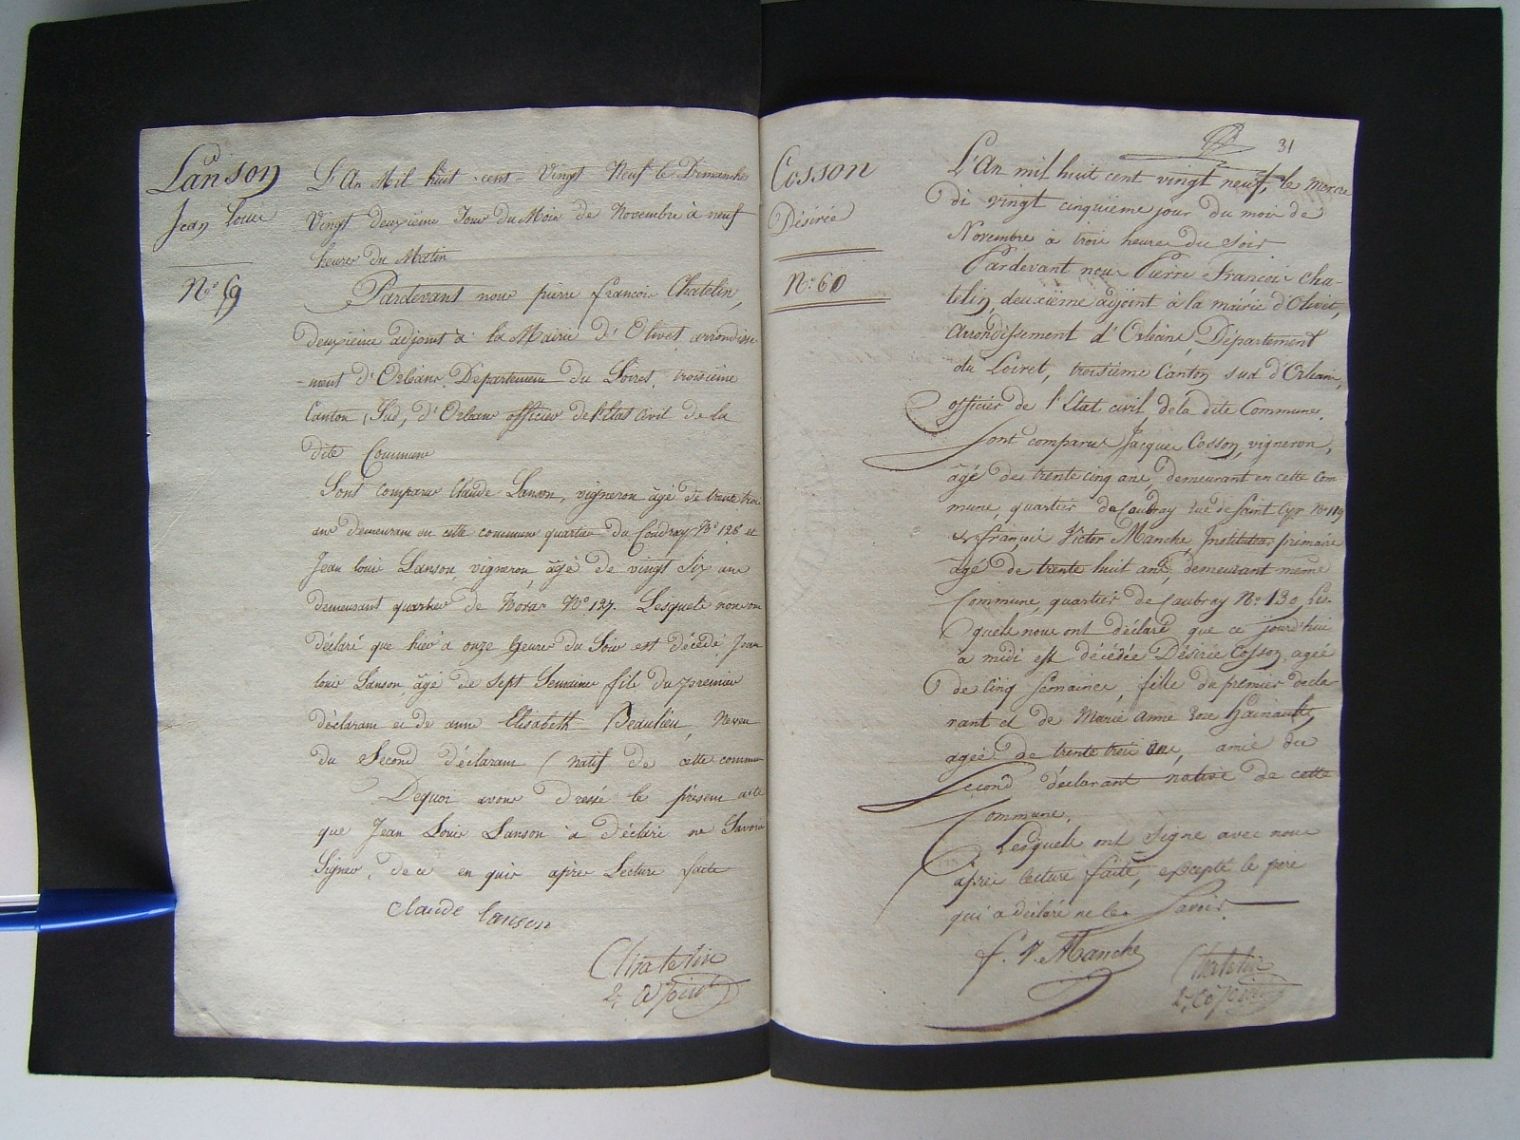 Lanson
Jean Louis
N° 59
L'An Mil huit cent Vingt Neuf le Dimanche
Vingt deuxième Jour du Mois de Novembre à neuf
heures du Matin
Pardevant nous pierre françois Chatelin,
deuxième adjoint à la Mairie d'Olivet, arrondisse
-ment d'Orléans, Departement du Loiret, troisième
Canton, Sud, d'Orléans officier de l'Etat civil de la
dite Commune
Sont comparus Claude Lanson, vigneron âgé de trente trois
ans demeurant en cette commune quartier du Coudray N° 128 et
Jean louis Lanson, vigneron, âgé de vingt Six ans
demeurant quartier de N° 137. Lesquels nous ont
déclaré que hier à onze heures du Soir est décédé Jean
louis Lanson, âgé de Sept Semaines fils du premier
déclarant et de anne Elisabeth Beaulieu, Neveu
du Second déclarant natif de cette commune
Dequoi avons Dressé le présent acte
que Jean Louis Lanson a déclaré ne Savoir
Signer, de ce enquis après Lecture faite
Claude lanson
Chatelin
2e adjoint
31
Cosson
Désirée
N° 60
L'An mil huit cent vingt neuf, le mercre
di vingt cinquième jour du mois de
Novembre à trois heures du soir
Pardevant nous Pierre Francois Cha-
telin, deuxième adjoint à la mairie d'Olivet,
Arrondissement d'Orléans, Département
du Loiret, troisième Canton sud d'Orléans,
officier de l'Etat civil de la dite Commune.
Sont comparus Jacques Cosson, vigneron,
âgé des trente cinq ans, demeurant en cette Com
mune, quartier de Caubray rue de Saint Cyr N° 119
& françois Victor Manche Instituteur primaire
âgé de trente huit ans, demeurant meme
Commune, quartier de Caubray N° 130, Les-
quels nous ont déclaré que ce jourd'hui
à midi est décédée Désirée Cosson, agée
de Cinq semaines, fille du premier décla
rant et de Marie Anne Rose hainault,
agée de trente trois ans, amie du
Second déclarant native de cette
Commune.
Lesquels ont Signé avec nous
après lecture faite, excepté le pere
qui a déclaré ne les Savoir
f. V. Manche
Chatelin
2e adjoint